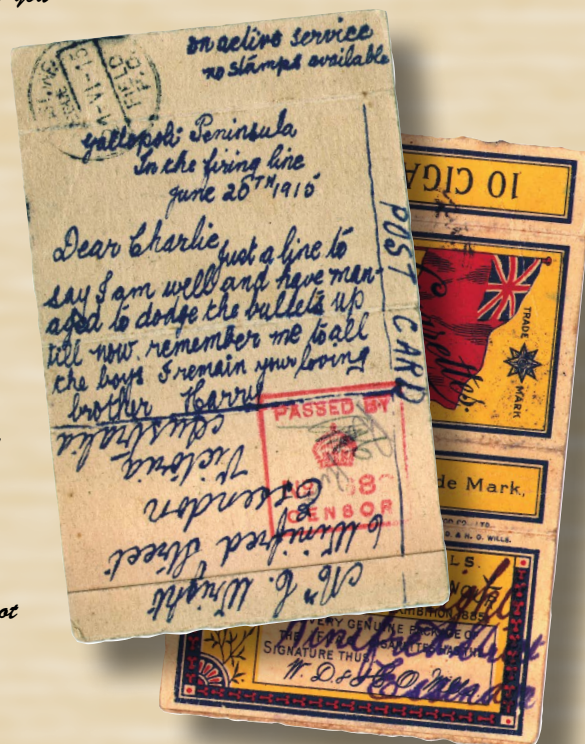 you
on active service
no stamps available
FIELD
P.O.
Gallopoli Peninsula
In the firing line
June 20TH 1915
Dear Charlie
Just a line to
say I am well and have man-
aged to dodge the bullets up
till now. remember me to all
the boys I remain your loving
brother Harry
POST CARD
PASSED BY
CENSOR
Mr C. Wright
6 Winifred Street
Essendon
Victoria
Australia
10 CIGA
TRADE
MARK
de Mark,
& H. O. WILLS.
LS.
VERY GENUINE
SIGNATURE THUS
W. D. & H. O.
Essendon
ot